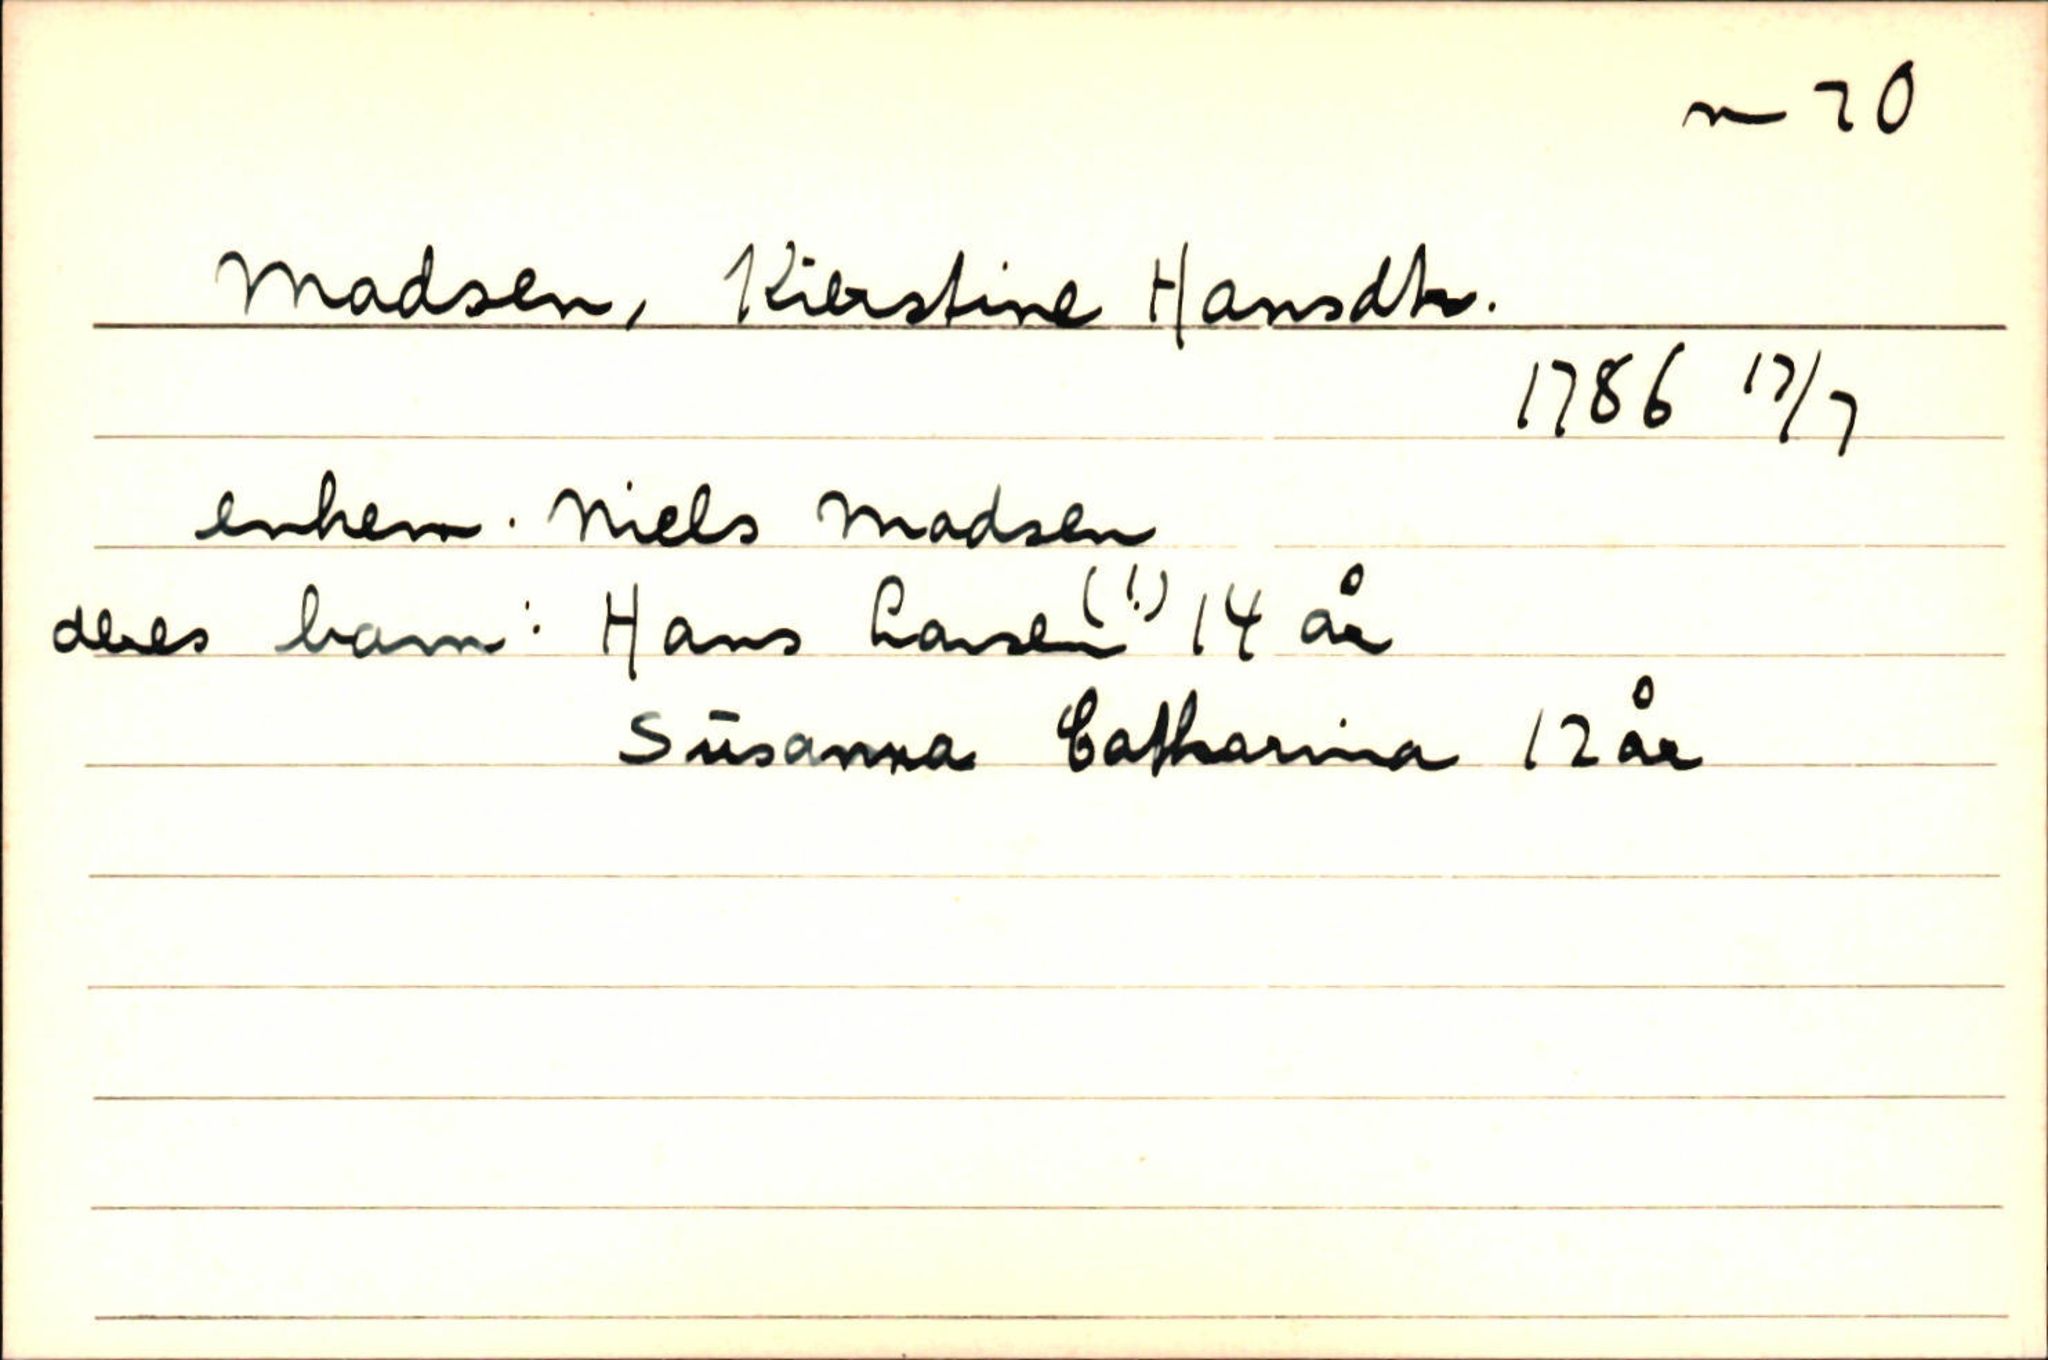 m 20
Madsen, Kierstine Hansdtr.
1786 17/7
enkem. Niels Madsen
deres barn: Hans Larsen (!) 14 år
Susanna Catharina 12 år